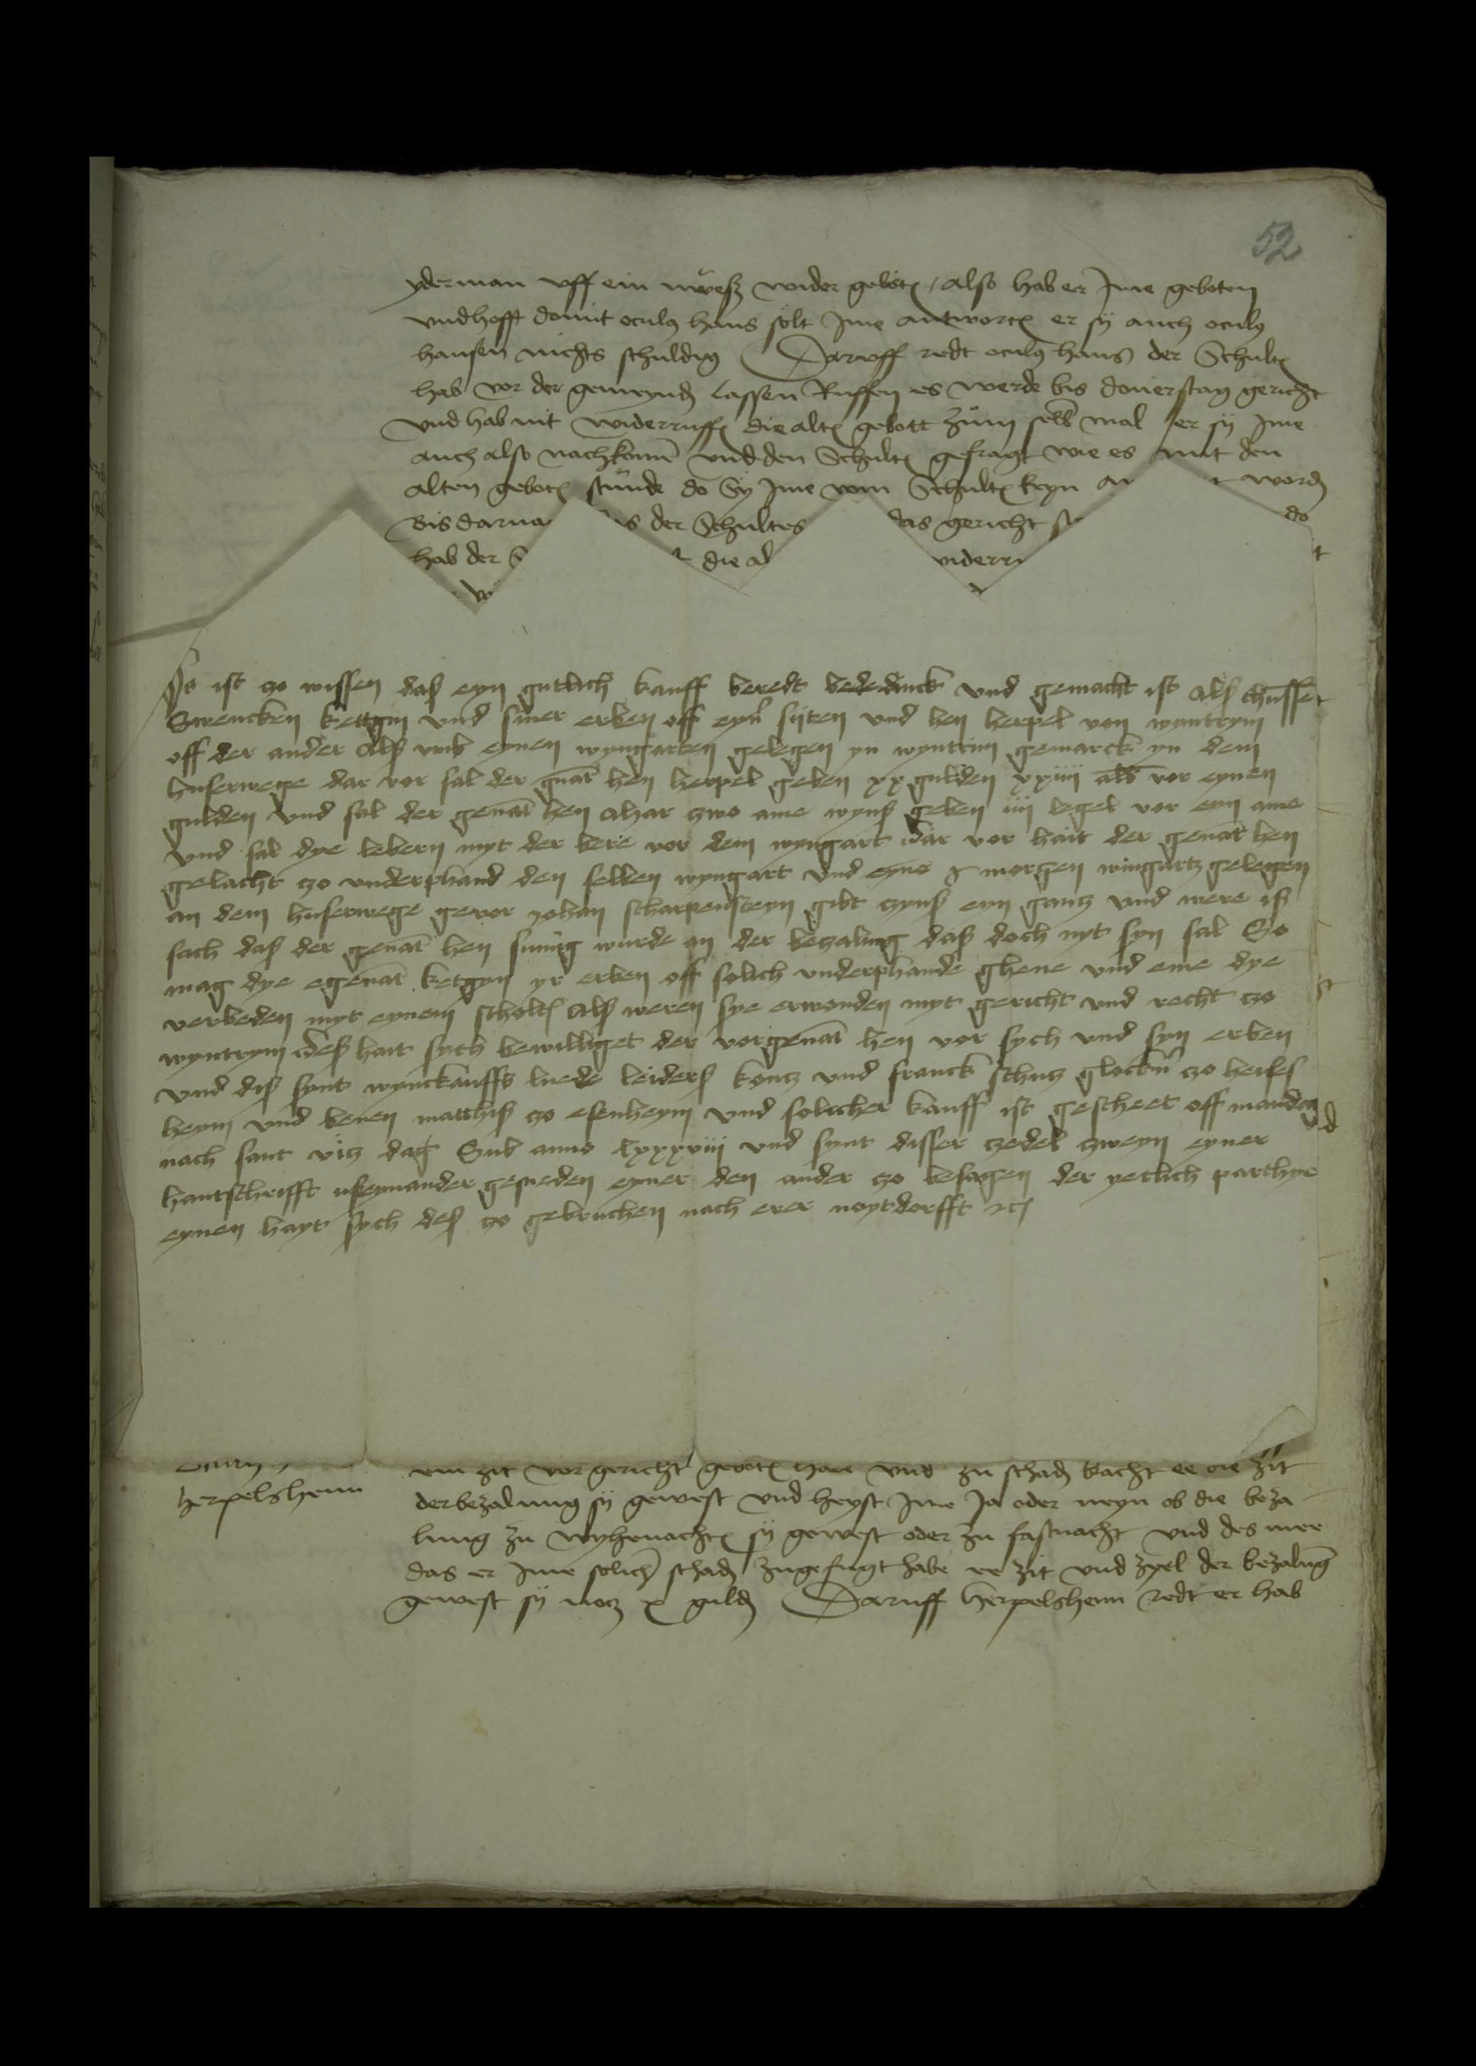 52
yderman uff ein nuwes wider geboten / also hab er Ime geboten
und hofft domit oculus hans solt Ime antworten er sij auch oculus
hansen nichts schuldig Daruff redt oculus hans der Schultes
hab vor der gemeynde lassen Ruffen es werde bis donerstag gericht
und hab nit widerruffen die alten gebott zum selben mal er sij Ime
auch also nachkomen und den Schultes gefragt wie es mit den
alten geboten stunde do Sij Ime vom Schultes keyn an t worden
Bis darna s der Schultes das gericht do
hab der S t die al widerr t
Es ist zo wissen daß eyn gutlich kauff beredt und gemacht ist alß
Swencken kettgin und siner erben off eyner sijten und hen herpel von wyntrym
off der ander alß umb eynen wyngarten gelegen yn wyntrim gemarck yn dem
huserwege dar vor sal der gnant hen herpel geben xx gulden xxiiii alb vor eynen
gulden und sal der genant hen alle jar zwo ame wynß geben iiii legel vor eyn ame
und sal dye lebern myt der bere vor dem wyngart dar vor hait der genant hen
gelacht zo underphand den selben wyngart und eyns morgen wingartz gelegen
an dem huserwege gevor johan scharpensteyn gibt zynß eyn gantz und were iß
sach daß der genant hen sumig wurde an der bezalung daß doch nyt syn sal So
mag dye egenant ketgyn yr erben off solich underphande ghene und eme dye
verbeden myt eynem scholtes alß weren sye erwonden myt gericht und recht zo
wyntrym deß hait sych bewilliget der vorgenant hen vor sych und syn erben
und diß synt wynckauffs luede kontz und franck schutz glockner zo
heym und benen matthiß zo esenheym und solicher kauff ist gescheet off mandag
nach sant vitz dag Sub anno lxxxviii und synt disser zedel zweyn eyner
hantschrifft ußeynander gesneden eyner den ander zo besagen der yetlich parthye
eynen hayt sych deß zo gebruchen nach erer noytdorfft etc
herpelshenn
ein zit vor gericht geboten habe und zu schaden bracht ee die zijt
der bezalung sij gewest und heyst Ime Ja oder neyn ob die beza
lung zu wyhenachten sij gewest oder zu fastnacht und des mee
das er Ime solichen schaden zugefugt habe ee zit und zyel der bezalung
gewest sij nocz x gulden Daruff Herpelshenn redt er hab